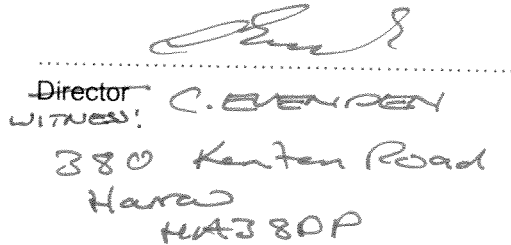 Director C. EVENDEN
WITNESS:
380 Kenton Road
Harrow
HA3 8DP